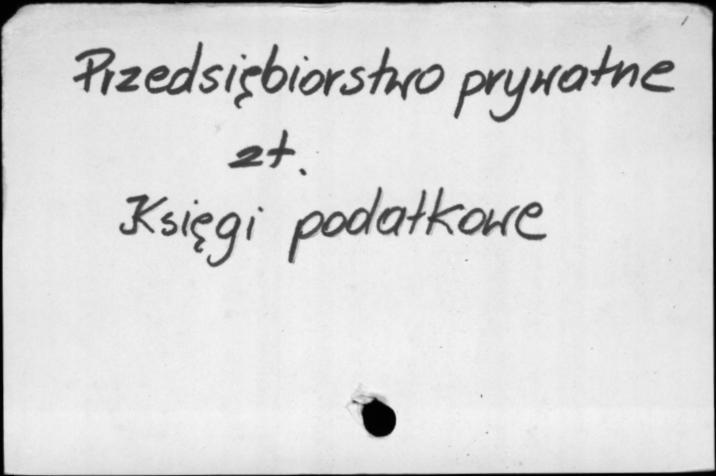 Przedsiębiorstwo prywatne
zł.
Księgi podatkowe